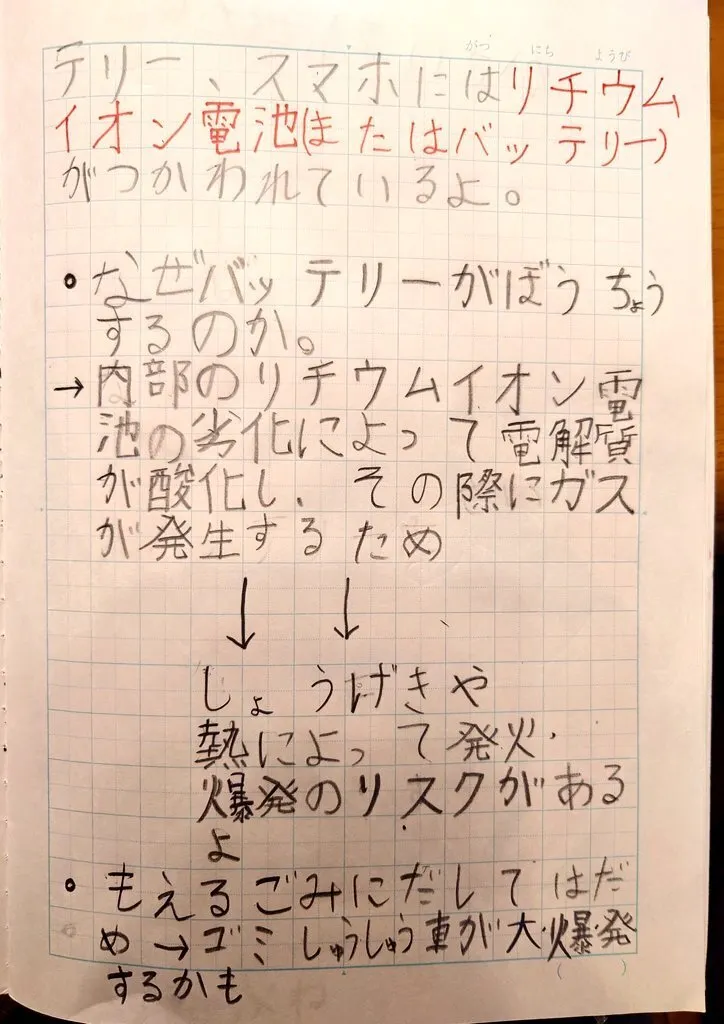 がつ にち ようび
テリー、スマホにはリチウム
イオン電池(またはバッテリー)
がつかわれているよ。
・なぜバッテリーがぼうちょう
するのか。
→内部のリチウムイオン電
池の劣化によって電解質
が酸化し、その際にガス
が発生するため
↓ ↓
しょうげきや
熱によって発火・
爆発のリスクがある
よ
・もえるごみにだしてはだ
め→ゴミしゅうしゅう車が大・爆・発
( )
するかも